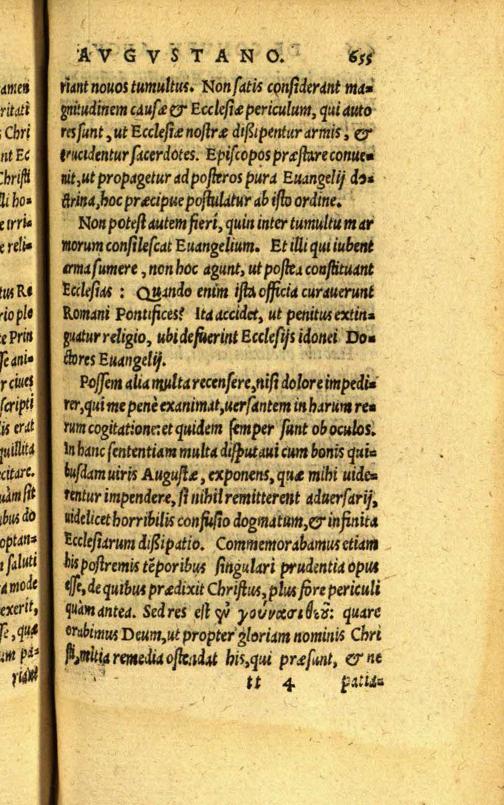 AVGVSTANO. 655
riant nouos tumultus. Non satis considerant ma-
gnitudinem causæ & Ecclesiæ periculum, qui auto
res sunt, ut Ecclesiæ nostræ dißipentur armis, &
trucidentur sacerdotes. Episcopos præstare conue-
nit, ut propagetur ad posteros pura Euangelij do-
ctrina, hoc præcipue postulatur ab isto ordine.
Non potest autem fieri, quin inter tumultum ar
morum consilescat Euangelium. Et illi qui iubent
arma sumere, non hoc agunt, ut postea constituant
Ecclesias: Quando enim ista officia curauerunt
Romani Pontifices? Ita accidet, ut penitus extin-
guatur religio, ubi defuerint Ecclesijs idonei Do-
ctores Euangelij.
Possem alia multa recensere, nisi dolore impedi-
rer, qui me penè exanimat, uersantem in harum re-
rum cogitatione: et quidem semper sunt ob oculos.
In hanc sententiam multa disputaui cum bonis qui-
busdam uiris Augustæ, exponens, quæ mihi uide-
rentur impendere, si nihil remitterent aduersarij,
uidelicet horribilis confusio dogmatum, & infinita
Ecclesiarum dißipatio. Commemorabamus etiam
his postremis tēporibus singulari prudentia opus
esse, de quibus prædixit Christus, plus fore periculi
quàm antea. Sed res est γούνασι θεῶν: quare
orabimus Deum, ut propter gloriam nominis Chri
sti, mitia remedia ostendat his, qui præsunt, & ne
tt 4 patia-
amen
ritati
s Chri
nt Ec
Christi
lli ho-
e irri-
e reli-
tus Re
rio plo
te Prin
ße ani-
r ciues
scripti
lis erat
quillita
citare.
uàm sit
ibus do
optan-
n saluti
ra mode
exerit,
sse, quæ
um pa-
riant